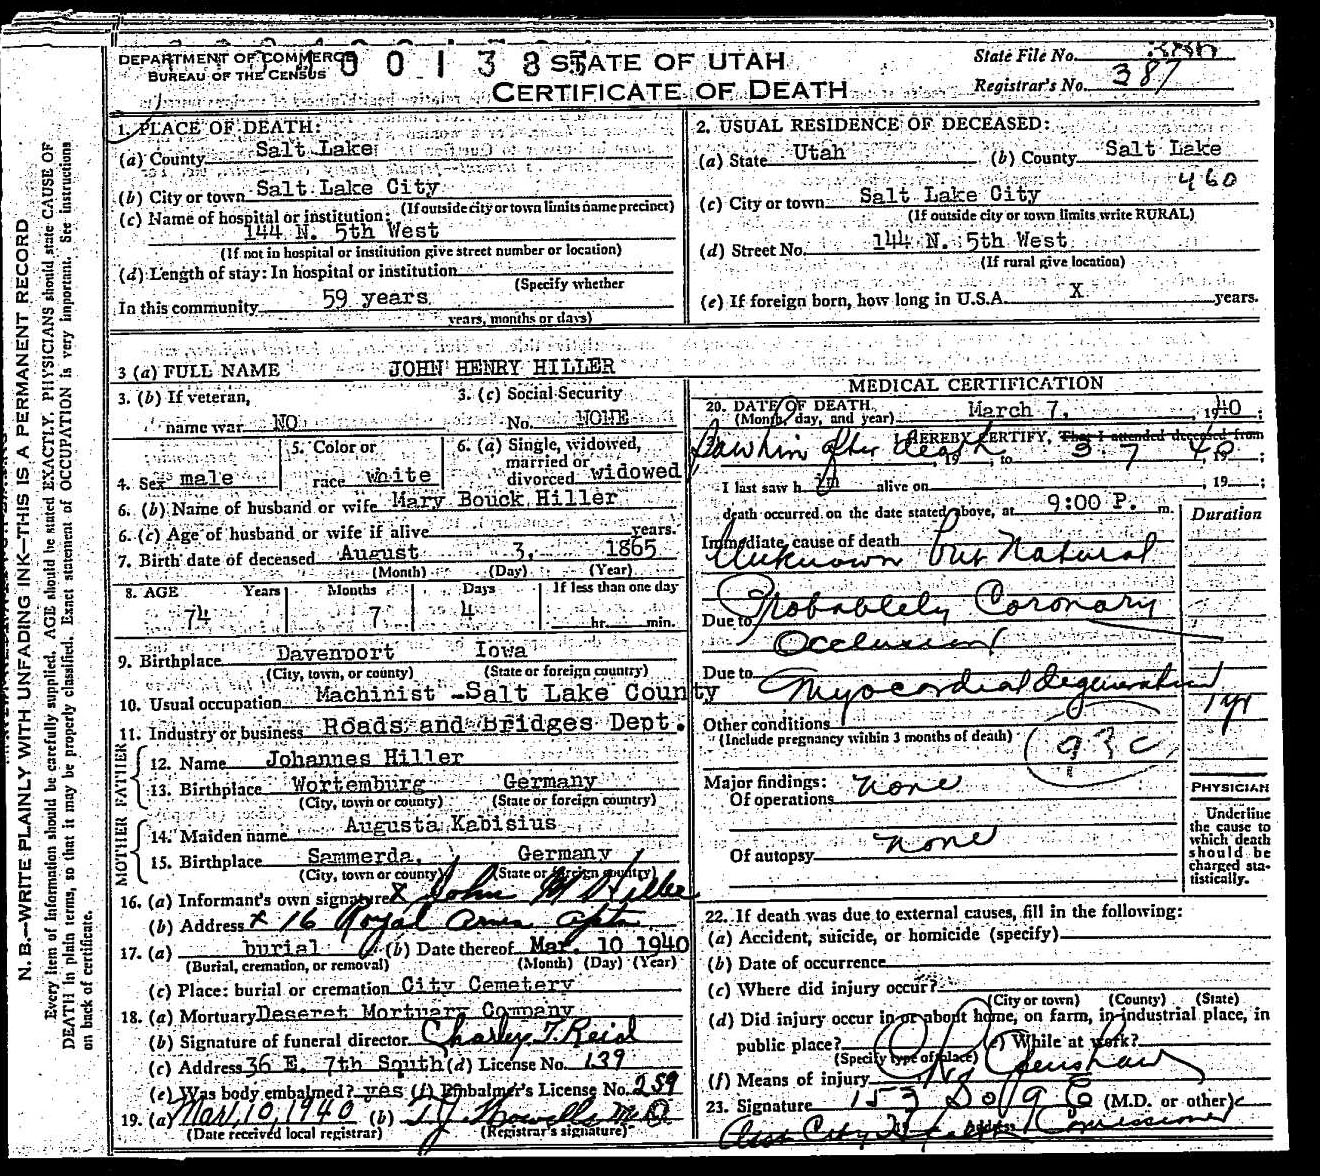 DEPARTMENT OF COMMERCE
BUREAU OF THE CENSUS
STATE OF UTAH
CERTIFICATE OF DEATH
State File No.
Registrar's No. 387
1. PLACE OF DEATH:
(a) County Salt Lake
(b) City or town Salt Lake City
(If outside city or town limits name precinct)
(c) Name of hospital or institution:
144 N. 5th West
(If not in hospital or institution give street number or location)
(d) Length of stay: In hospital or institution
(Specify whether
In this community 59 years
years, months or days)
2. USUAL RESIDENCE OF DECEASED:
(a) State Utah (b) County Salt Lake
460
(c) City or town Salt Lake City
(If outside city or town limits write RURAL)
(d) Street No. 144 N. 5th West
(If rural give location)
(e) If foreign born, how long in U.S.A. X years.
3 (a) FULL NAME JOHN HENRY HILLER
3. (b) If veteran,
name war NO
3. (c) Social Security
No. NONE
4. Sex male
5. Color or
race white
6. (a) Single, widowed,
married or
divorced widowed
6. (b) Name of husband or wife Mary Bouck Hiller
6. (c) Age of husband or wife if alive years.
7. Birth date of deceased August 3, 1865
(Month) (Day) (Year)
8. AGE Years Months Days If less than one day
74 7 4 hr. min.
9. Birthplace Davenport Iowa
(City, town, or county) (State or foreign country)
10. Usual occupation Machinist -Salt Lake County
11. Industry or business Roads and Bridges Dept.
FATHER
12. Name Johannes Hiller
13. Birthplace Wortemburg Germany
(City, town or county) (State or foreign country)
MOTHER
14. Maiden name Augusta Kabisius
15. Birthplace Sammerda, Germany
(City, town or county) (State or foreign country)
16. (a) Informant's own signature x John M Hiller
(b) Address x 16 Royal Arms Apts
17. (a) burial (b) Date thereof Mar. 10 1940
(Burial, cremation, or removal) (Month) (Day) (Year)
(c) Place: burial or cremation City Cemetery
18. (a) Mortuary Deseret Mortuary Company
(b) Signature of funeral director Charley T. Reid
(c) Address 36 E. 7th South (d) License No. 139
(e) Was body embalmed? yes (f) Embalmer's License No. 259
19. (a) Mar, 10, 1940 (b) T. J. Howells M.D.
(Date received local registrar) (Registrar's signature)
MEDICAL CERTIFICATION
20. DATE OF DEATH
(Month, day, and year) March 7, 1940;
I HEREBY CERTIFY, That I attended deceased from
Saw him after death, 19 , to 3 7 40, 19 ;
I last saw him alive on , 19 ;
death occurred on the date stated above, at 9:00 P. m.
Duration
Immediate cause of death
Unknown but Natural
Probablely Coronary
Due to
Occlusion
Due to Myocardial degeneration
1 yr
Other conditions
(Include pregnancy within 3 months of death)
93c
Major findings:
Of operations none
Of autopsy none
PHYSICIAN
Underline
the cause to
which death
should be
charged sta-
tistically.
22. If death was due to external causes, fill in the following:
(a) Accident, suicide, or homicide (specify)
(b) Date of occurrence
(c) Where did injury occur?
(City or town) (County) (State)
(d) Did injury occur in or about home, on farm, in industrial place, in
public place? (e) While at work?
(Specify type of place)
(f) Means of injury
Openshaw
23. Signature 153 So 9 E (M.D. or other)
Asst City Health Commissioner
Address
N. B.—WRITE PLAINLY WITH UNFADING INK—THIS IS A PERMANENT RECORD
Every item of information should be carefully supplied. AGE should be stated EXACTLY. PHYSICIANS should state CAUSE OF
DEATH in plain terms, so that it may be properly classified. Exact statement of OCCUPATION is very important. See instructions
on back of certificate.